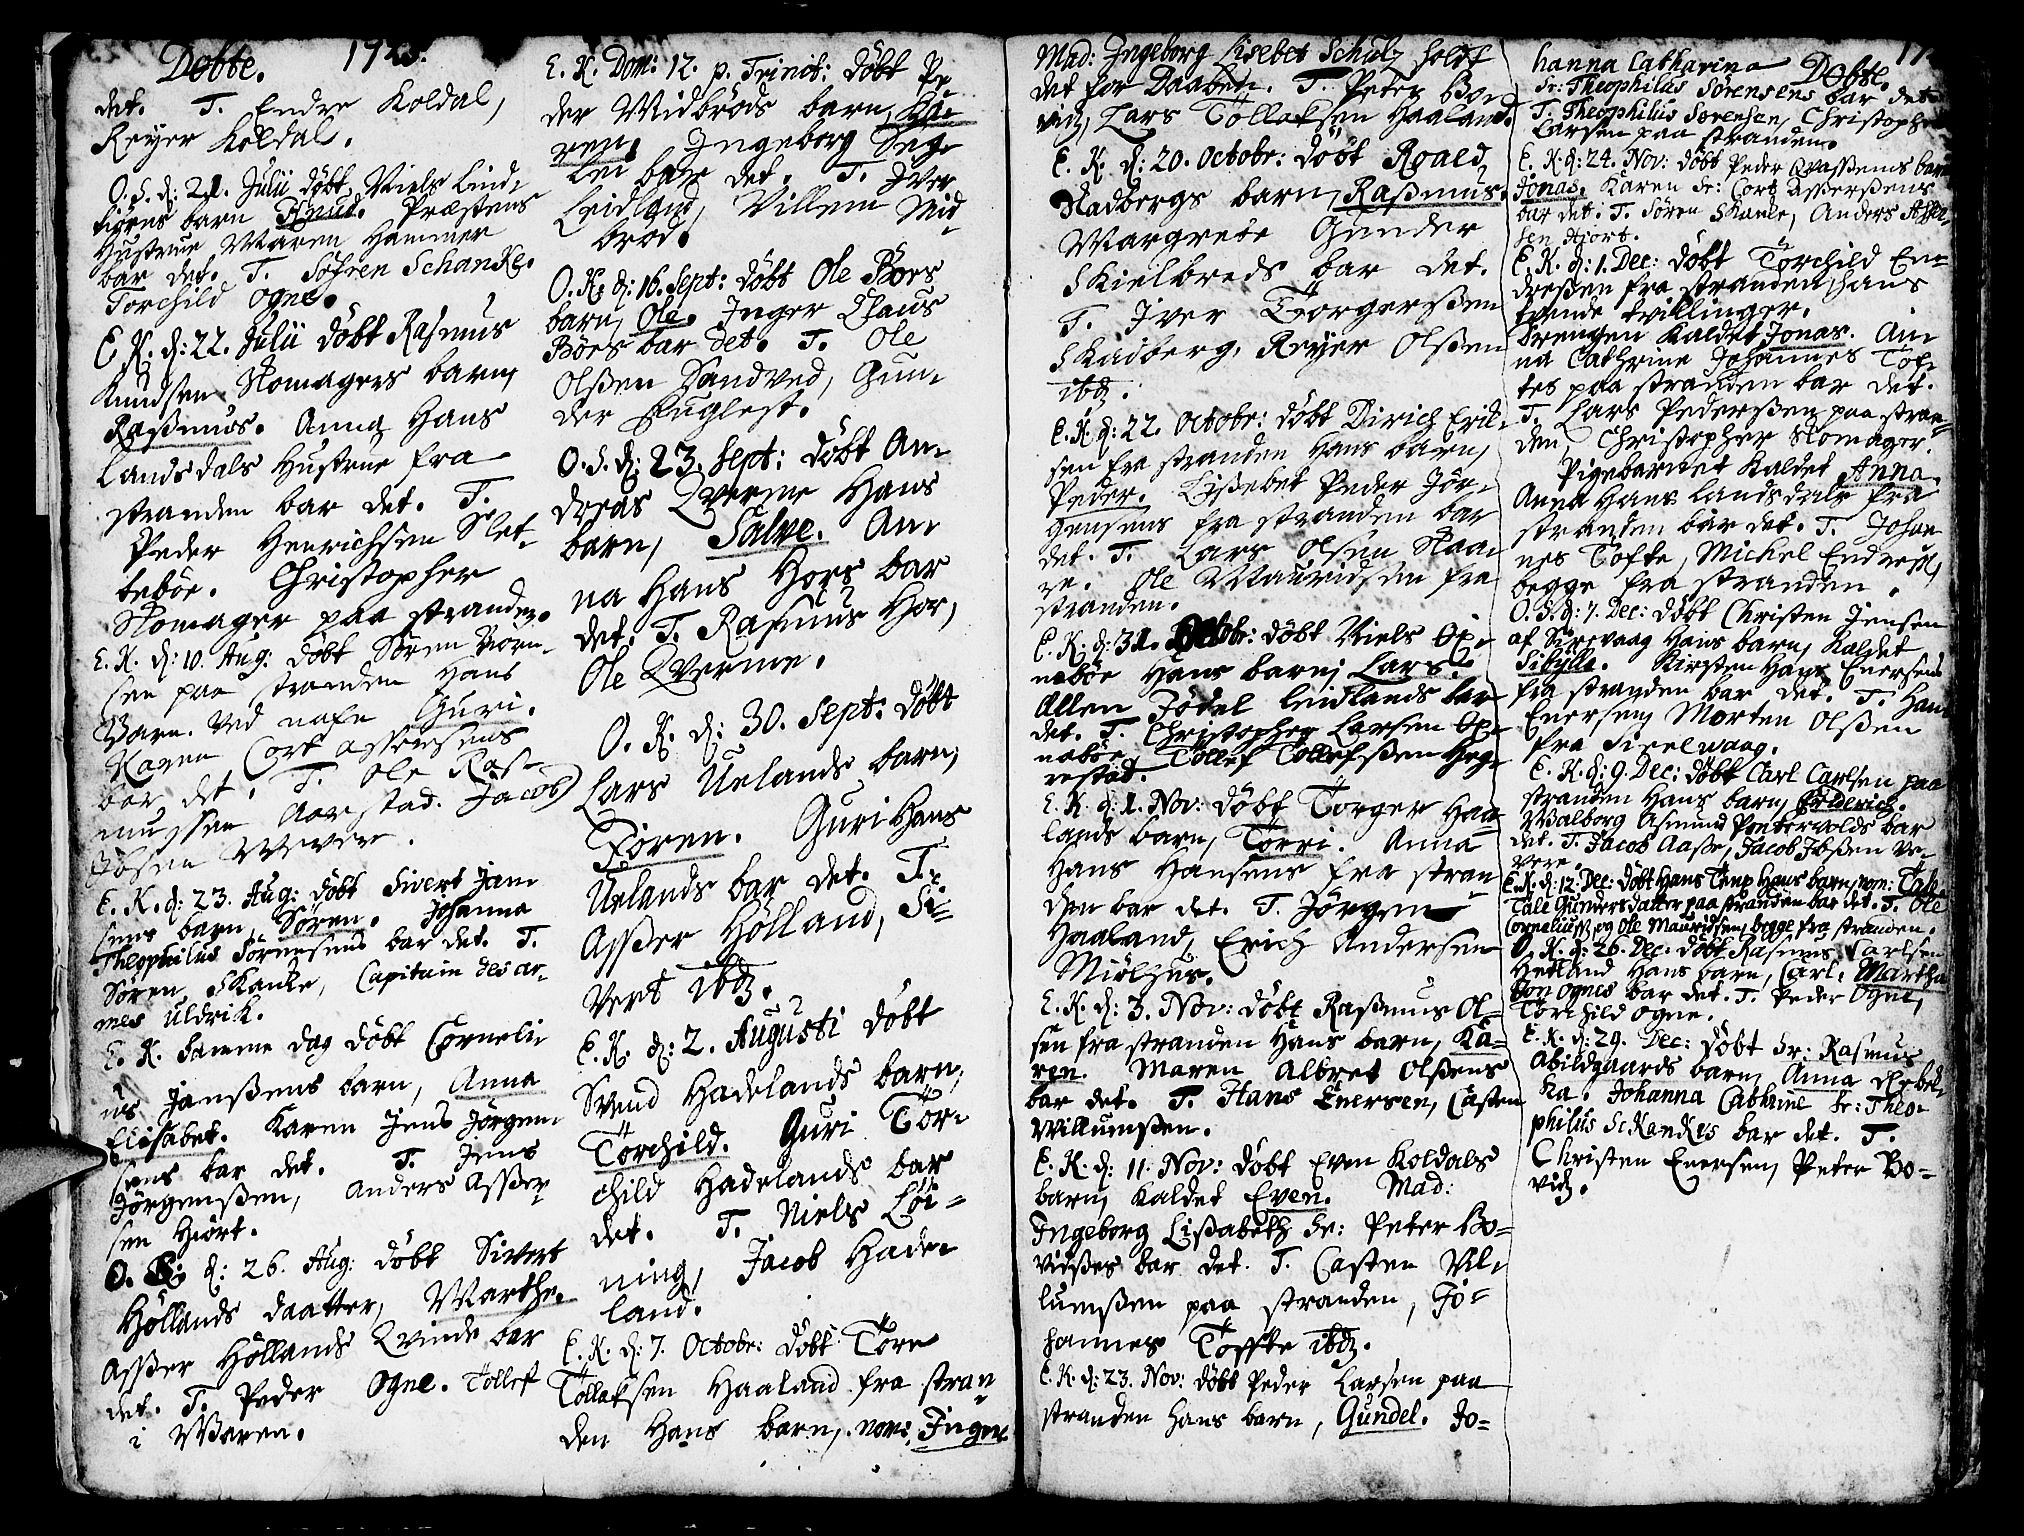 Døbte. 1725.
det. T. Endre Koldal,
Reyer Koldal.
O. S. d: 21. Julii døbt Niels Lind-
tiørns barn Knud. Præstens
Hustrue Maren Hammer
bar det. T. Søfren Schanke.
Torchild Ogne.
E. K. d: 22. Julii døbt Rasmus
Knudsen Skomagers barn,
Rasmus. Anna Hans
Landsdals Hustrue fra
stranden bar det. T.
Peder Henrichsen Slet-
tebøe. Christopher
Skomager paa stranden.
E. K. d: 10. Aug: døbt Søren
sen paa stranden Hans
Barn. ved nafn Guri.
Karen Cort Assersens
bar det. T. Ole Ras-
mussen Aarstad. Jacob
Ibsen Wever.
E. K. d: 23. Aug: døbt Sivert Jan-
sens barn, Søren. Johanna
Theophilus Sørensens bar det. T.
Søren Skanke, Capitain des ar-
mes Uldrik.
E. K. Samme dag døbt Corneli-
us Janßens barn, Anna
Elisabet. Karen Jens Jørgen-
sens bar det. T. Jens
Jørgenßen, Anders Aßer-
sen Hiort.
O. K. d: 26. Aug: døbt Sivert
Høllands daatter, Marthe.
Aßer Høllands Qvinde bar
det. T. Peder Ogne. Tollef
i Waren.
E. K. Dom: 12. p. Trinit: døbt Pe-
der Midbrøds barn, Ka-
ren. Ingeborg Seg-
lei bar det. T. Iver
Leidland, Villem Mid-
brød.
O. K. d: 16. Sept: døbt Ole Børs
barn, Ole. Inger Claus
Børs bar det. T. Ole
Olßen Sandved, Gun-
der Fuglest.
O. S. d: 23. Sept: døbt An-
dreas Qverme Hans
barn, Salve. An-
na Hans Hors bar
det. T. Rasmus Hor,
Ole Qverme.
O. K. d: 30. Sept: døbt
Lars Uelands barn,
Søren. Guri Hans
Uelands bar det. T.
Asßer Hølland, Si-
vert ibdz.
E. K. d: 2. Augusti døbt
Svend Hadelands barn,
Torchild. Guri Tor-
child Hadelands bar
det. T. Niels Løi-
ning, Jacob Hade-
land.
E. K. d: 7. Octobr: døbt Tore
Tollaksen Haaland fra stran
den Hans barn, nom: Inger
Mad: Ingeborg Lisebet Schulz holdt
det for Daaben. T. Peter Bo-
vidz, Lars Tollaksen Haaland.
E. K. d: 20. Octobr: døbt Roald
Stadbergs barn, Raßmus.
Margrete Gunder
Skielbreds bar det.
T. Iver Torgerßen
Skadberg, Reyer Olßen
ibdz.
E. K. d: 22. Octobr: døbt Dirich Erik-
sen fra stranden Hans barn,
Peder. Lisßebet Peder Jør-
gensens fra stranden bar
det. T. Lars Olsen Skaa-
re. Ole Mauridsen fra
stranden.
E. K. d: 31. Octobr: døbt Niels Ox-
nebøe Hans barn, Lars.
Allen Jødel Leidlands bar
det. T. Christopher Larsen Ox-
nebøe, Tollef Tollefsßen Heg-
restad.
E. K. d: 1. Nov: døbt Torger Haa-
lands barn, Torri. Anna
Hans Hansens fra stran-
den bar det. T. Jørgen
Haaland, Erich Andersen
Miølhus.
E. K. d: 3. Nov: døbt Raßmus Ol-
sen fra stranden Hans barn, Ka-
ren. Maren Albret Olßens
bar det. T. Hans Enersen, Casten
Willumßen.
E. K. d: 11. Nov: døbt Even Koldals
barn, kaldet Even. Mad:
Ingeborg Lisßabeth Sr: Peter Bo-
vidßes bar det. T. Casten Vil-
lumßen paa stranden, Jo-
hannes Toffte ibdz.
E. K. d: 23. Nov: døbt Peder Larsen paa
stranden Hans barn, Gundel. Jo-
17
hanna Catharina Døbte.
Sr: Theophilus Sørensens bar det.
T. Theophilus Sørensen, Christopher
Larsen paa stranden.
E. K. d: 24. Nov: døbt Peder Qvaßeims barn
Jonas. Karen Sr: Cort Asßersßens
bar det. T. Søren Skanke, Anders Asser-
sen Hiort.
E. K. d: 1. Dec: døbt Torchild En-
dreßen fra stranden, Hans
tvende tvillinger.
Drengen kaldet Jonas. An-
na Cathrine Johannes Tof-
tes paa stranden bar det.
T. Lars Pedersßen paa stran-
den, Christopher Skomager.
Pigebarnet kaldet Anna.
Anna Hans Landsdals fra
stranden bar det. T. Johan-
nes Tofte, Michel Endreß,
begge fra stranden.
O. S. d: 7. Dec: døbt Christen Jensen
af Sirevaag Hans barn, kaldet
Sibylle. Kirsten Hans Enersens
fra stranden bar det. T. Hans
Enersen, Morten Olßen
fra Sirelwaag.
E. K. d: 9. Dec: døbt Carl Carlsen paa
stranden Hans barn, Friderich.
Walborg Asmund Pntervolds bar
det. T. Jacob Aaße, Jacob Ibßen We-
vere.
E. K. d: 12. Dec: døbt Hans Tarp Hans barn, nom: Tale
Tale Gunnersdatter paa stranden bar det. T. Ole
Corneliusß, og Ole Mauridsen, begge fra stranden.
O. K. d: 26. Dec. døbt Rasmus Carlsen
Hetland Hans barn, Carl. Martha
Ton Ognes bar det. T. Peder Ogne,
Torchild Ogne.
E. K. d: 29. Dec: døbt Sr: Rasmus
Abildgaards barn, Anna Rebek-
ka. Johanna Cathrine Sr: Theo-
philus Schankes bar det. T.
Christen Enersen, Peter Bo-
vidz.